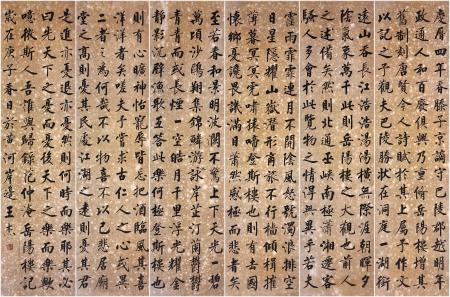 慶曆四年春滕子京謫守巴陵郡越明年
政通人和百廢具興乃重脩岳陽樓增其
舊制刻唐賢今人詩賦於其上屬予作文
以記之予觀夫巴陵勝狀在洞庭一湖銜
遠山吞長江浩浩湯湯橫無際涯朝暉夕
陰氣象萬千此則岳陽樓之大觀也前人
之述備矣然則北通巫峽南極瀟湘遷客
騷人多會於此覽物之情得無異乎若夫
霪雨霏霏連月不開陰風怒號濁浪排空
日星隱耀山嶽潛形商旅不行檣傾楫摧
薄暮冥冥虎嘯猿啼登斯樓也則有去國
懷鄉憂讒畏譏滿目蕭然感極而悲者矣
至若春和景明波瀾不驚上下天光一碧
萬頃沙鷗翔集錦鱗游泳岸芷汀蘭鬱鬱
青青而或長煙一空皓月千里浮光耀金
靜影沉璧漁歌互答此樂何極登斯樓也
則有心曠神怡寵辱皆忘把酒臨風其喜
洋洋者矣嗟夫予嘗求古仁人之心或異
二者之為何哉不以物喜不以己悲居廟
堂之高則憂其民處江湖之遠則憂其君
是進亦憂退亦憂然則何時而樂耶其必
曰先天下之憂而憂後天下之樂而樂歟
噫微斯人吾誰與歸錄范仲淹岳陽樓記
歲在庚子春日於黃河岸邊王